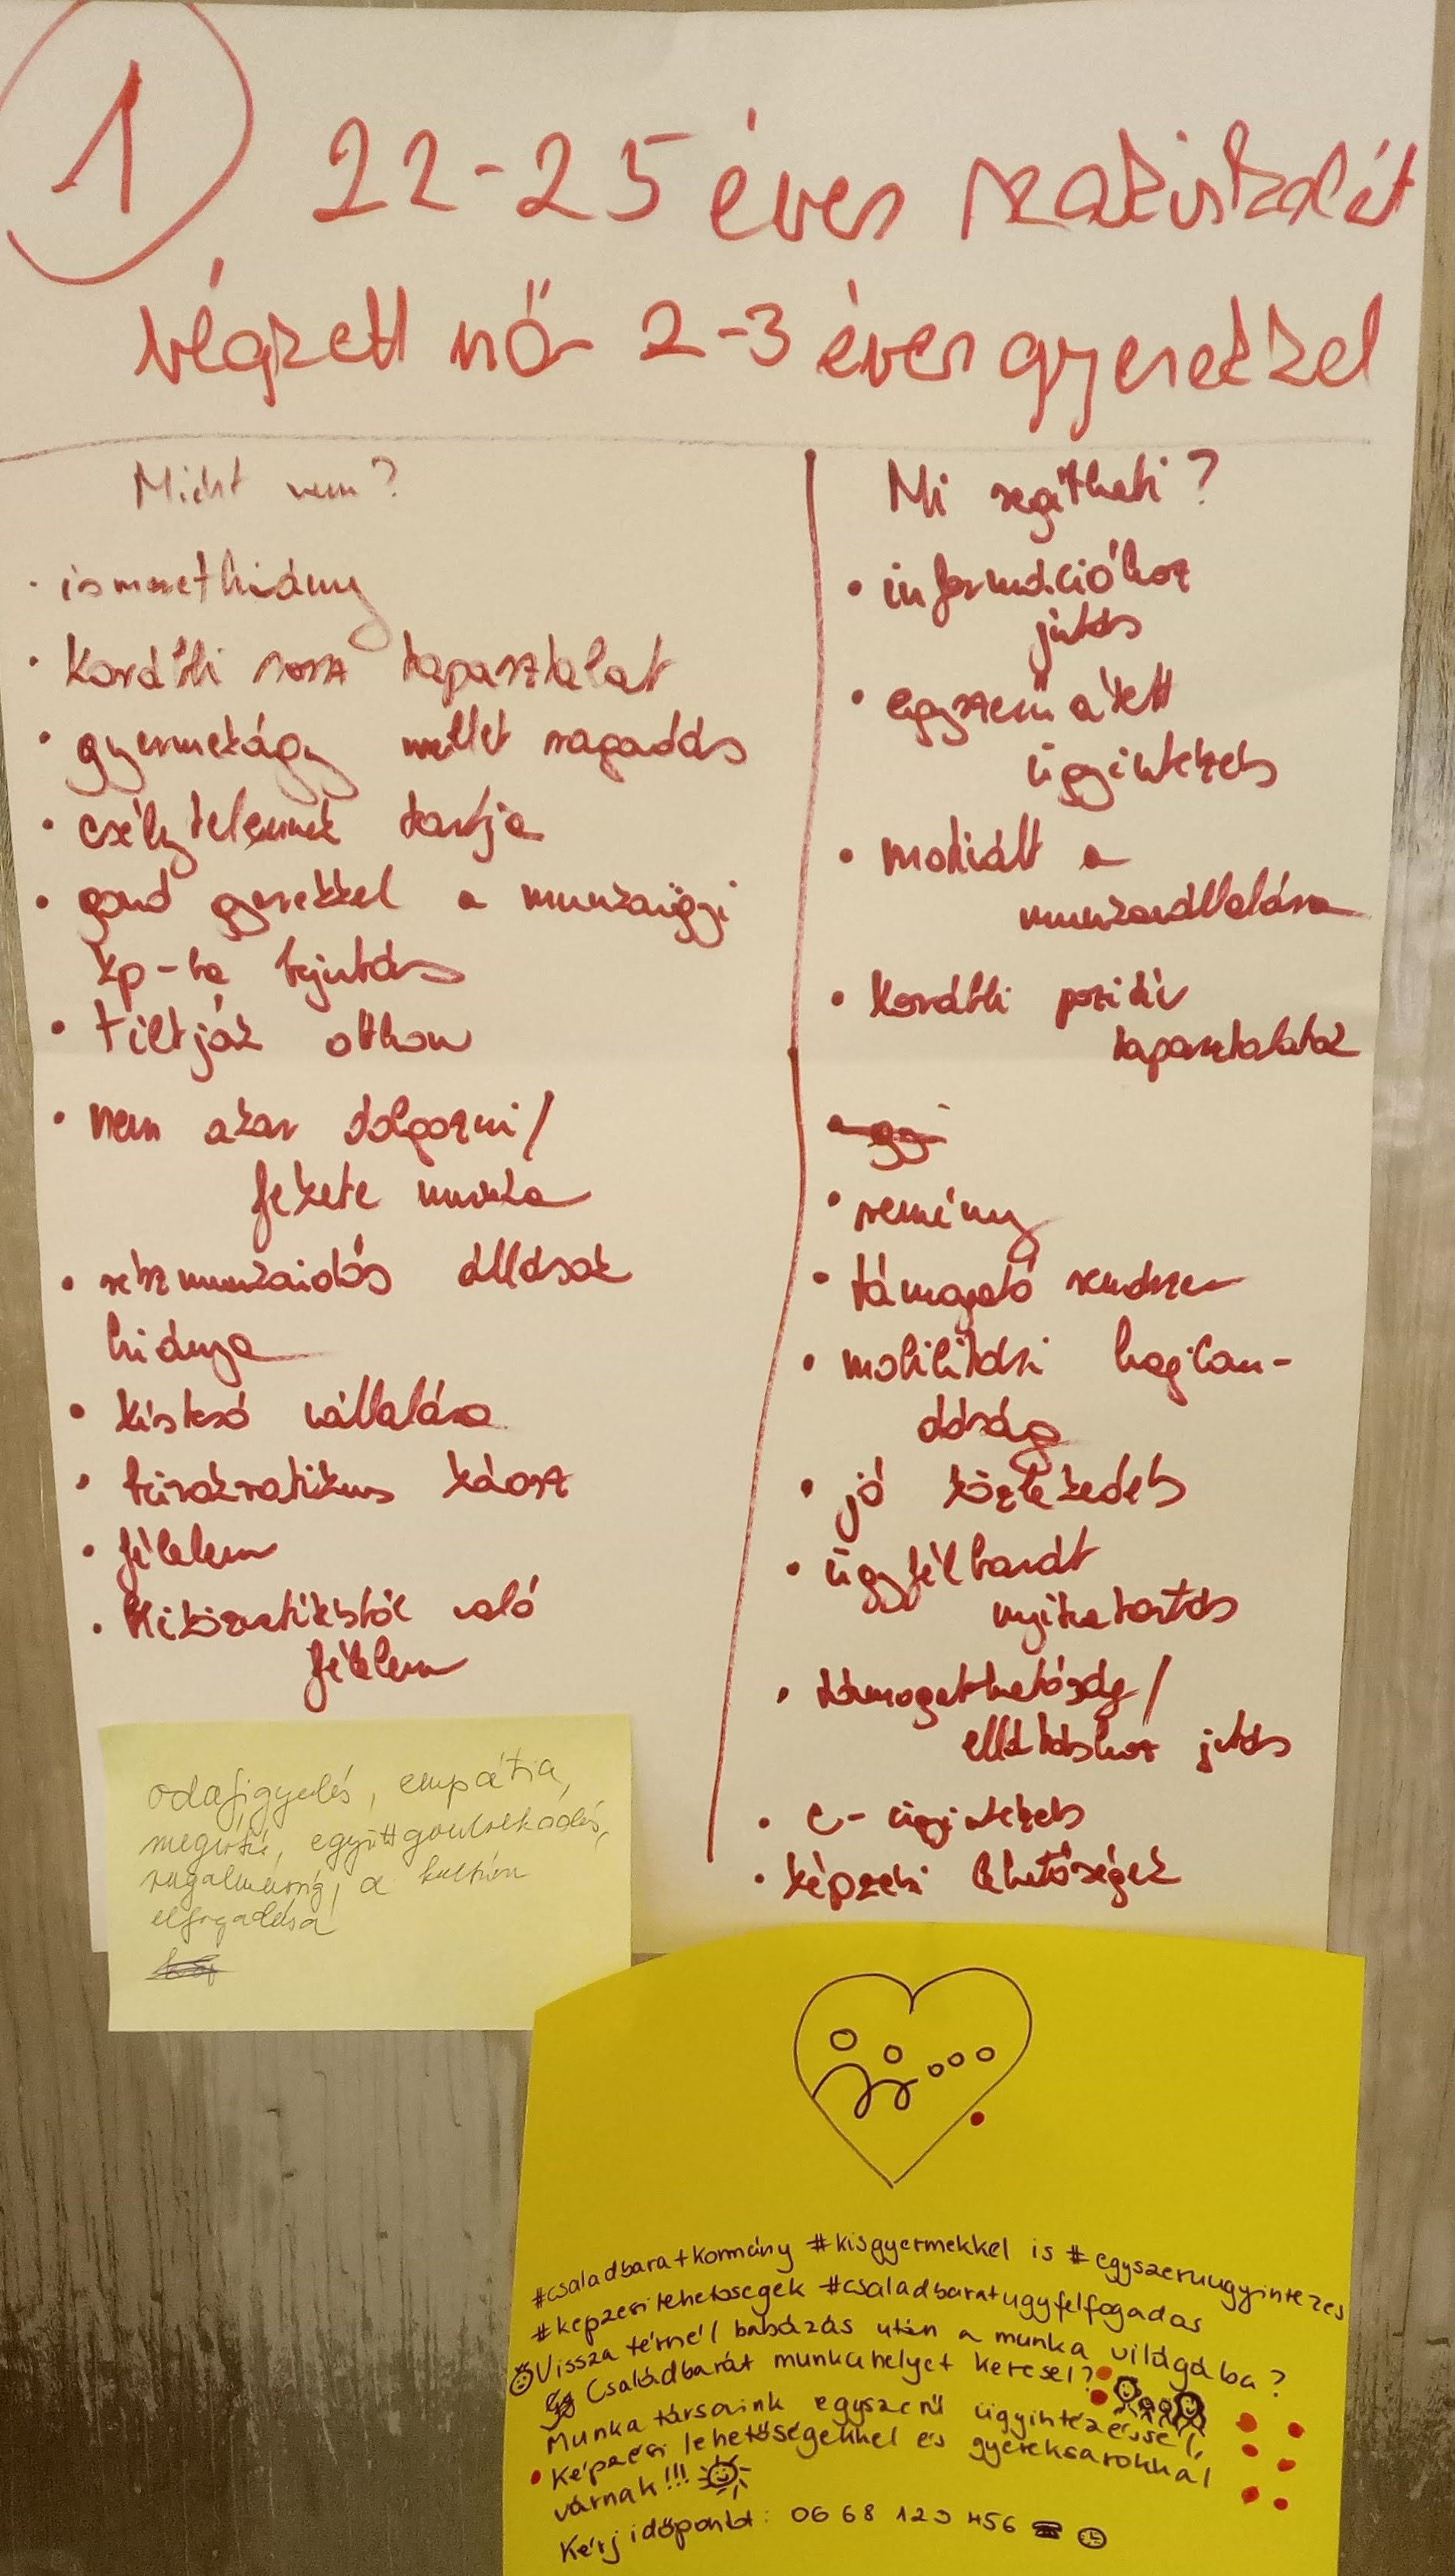 1
22-25 éves szakiskolát
végzett nő 2-3 éves gyerekkel
Miért nem?
• ismerethiány
• korábbi rossz tapasztalat
• gyermekágy mellet ragadás
• esélytelennek tartja
• gond gyerekkel a munkaügyi
kp-ba bejutás
• tiltják otthon
• nem akar dolgozni/
fekete munka
• részmunkaidős állások
hiánya
• késtesó vállalása
• bürokratikus káosz
• félelem
• kiközvetítéstől való
félelem
Mi segítheti?
• információhoz
jutás
• egyszerűsített
ügyintézés
• motivált a
munkavállalásra
• korábbi pozitív
tapasztalatok
• remény
• támogató rendszer
• mobilitási hajlan-
dóság
• jó közlekedés
• ügyfélbarát
nyitvatartás
• támogathatóság/
ellátáshoz jutás
• e-ügyintézés
• képzési lehetőségek
odafigyelés, empátia,
megértés, együttgondolkodás,
rugalmasság, a kultúra
elfogadása
#csaladbaratkormány #kisgyermekkel is #egyszeruugyintezes
#kepzesilehetosegek #csaladbaratugyfelfogadas
Visszatérnél babázás után a munka világába?
Családbarát munkahelyet keresel?
Munkatársaink egyszerű ügyintézéssel,
képzési lehetőségekkel és gyereksarokkal
várnak!!!
Kérj időpontot: 06 68 123 456